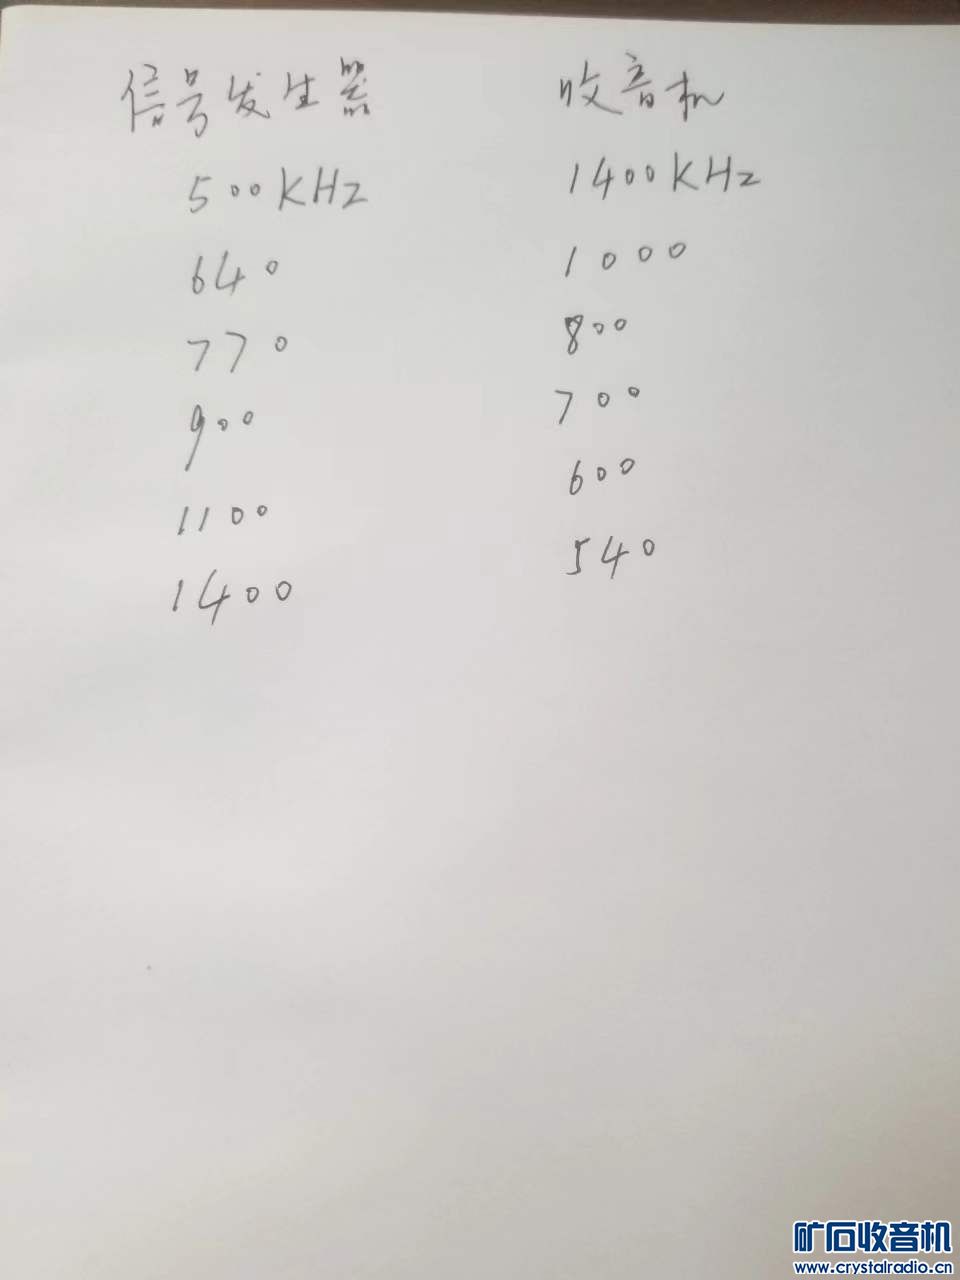 信号发生器 收音机
500KHz 1400KHz
640 1000
770 800
900 700
1100 600
1400 540
矿石收音机
www.crystalradio.cn